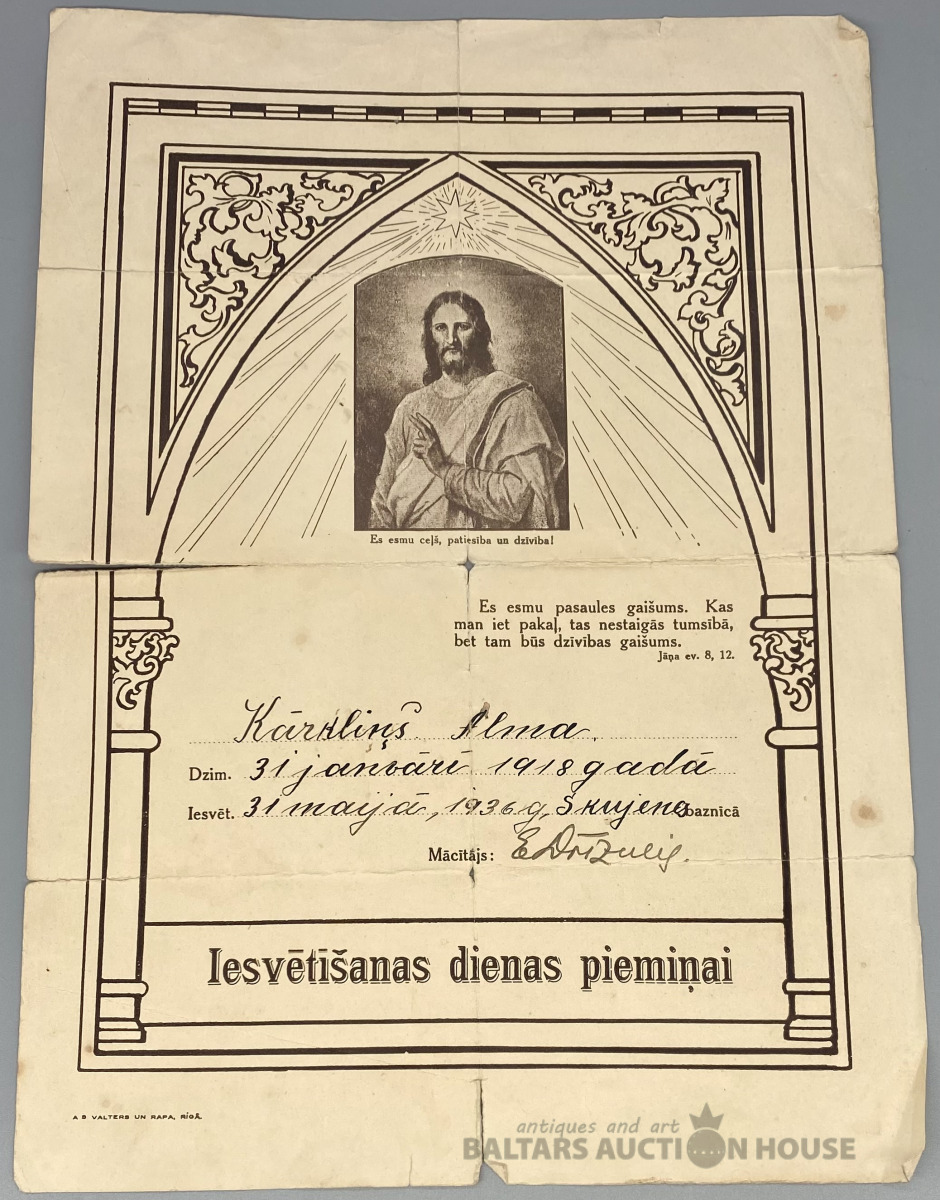 Es esmu ceļš, patiesība un dzīvība!
Es esmu pasaules gaišums. Kas
man iet pakaļ, tas nestaigās tumsībā,
bet tam būs dzīvības gaišums.
Jāņa ev. 8, 12.
Kārkliņš Alma.
Dzim. 31 janvārī 1918 gadā
Iesvēt. 31 maijā, 1936 g. Skujenes baznīcā
Mācītājs:
Iesvētīšanas dienas piemiņai
A S VALTERS UN RAPA, RĪGĀ.
antiques and art
BALTARS AUCTION HOUSE